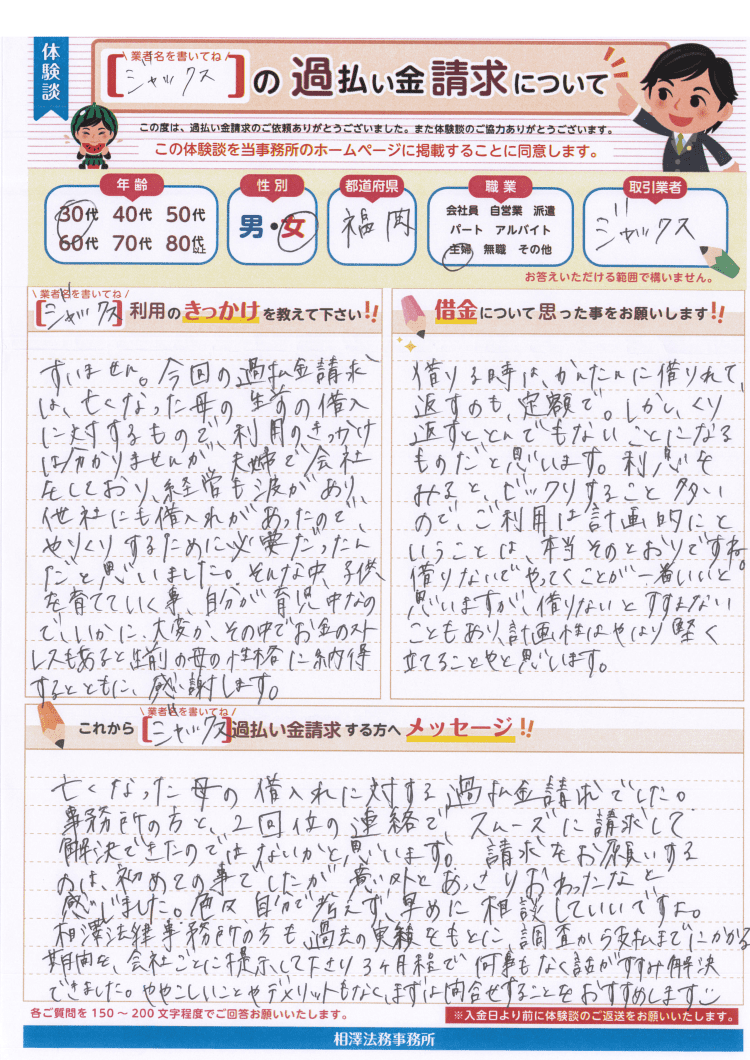 体験談
業者名を書いてね
[ジャックス]の過払い金請求について
この度は、過払い金請求のご依頼ありがとうございました。また体験談のご協力ありがとうございます。
この体験談を当事務所のホームページに掲載することに同意します。
年齢
30代 40代 50代
60代 70代 80代以上
性別
男・女
都道府県
福岡
職業
会社員 自営業 派遣
パート アルバイト
主婦 無職 その他
取引業者
ジャックス
お答えいただける範囲で構いません。
業者名を書いてね
[ジャックス]利用のきっかけを教えて下さい!!
すいません。今回の過払金請求
は、亡くなった母の生前の借入
に対するもので、利用のきっかけ
は分かりませんが、夫婦で会社
をしており、経営も波があり、
他社にも借入れがあったので、
やりくりするために必要だったん
だと思いました。そんな中、子供
を育てていく事、自分が育児中なの
で、いかに、大変か、その中でお金のスト
レスもあると生前の母の性格に納得
するとともに、感謝します。
借金について思った事をお願いします!!
借りる時は、かんたんに借りれて、
返すのも、定額で。しかし、くり
返すととんでもないことになる
ものだと思います。利息を
みると、ビックリすること多い
ので、ご利用は計画的にと
いうことは、本当そのとおりですね。
借りないでやってくことが一番いいと
思いますが、借りないとすすまない
こともあり、計画性はやはり堅く
立てることやと思います。
業者名を書いてね
これから[ジャックス]過払い金請求する方へメッセージ!!
亡くなった母の借入れに対する過払金請求でした。
事務所の方と、2回位の連絡で、スムーズに請求して
解決できたのではないかと思います。請求をお願いする
のは、初めての事でしたが意外とあっさりおわったなと
感じました。色々自分で考えず、早めに相談していいですよ。
相澤法律事務所の方も、過去の実績をもとに、調査から支払までにかかる
期間を、会社ごとに提示して下さり3ヶ月程で、何事もなく話がすすみ解決
できました。ややこしいことやデメリットもなく、まずは問合せすることをおすすめします
各ご質問を150〜200文字程度でご回答お願いいたします。
※入金日より前に体験談のご返送をお願いいたします。
相澤法務事務所